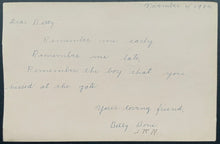 Dear Betty
Remember me early
Remember me late
Remember the boy that you
kissed at the gate
Your loving friend,
Billy